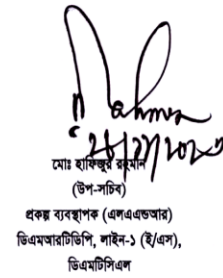 মোঃ হাফিজুর রহমান
(উপ-সচিব)
প্রকল্প ব্যবস্থাপক (এলএএন্ডআর)
ডিএমআরটিডিপি, লাইন-১ (ই/এস),
ডিএমটিসিএল